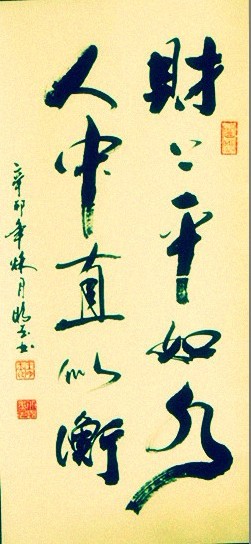 財上平如水
人中直似衡
辛卯年秋月